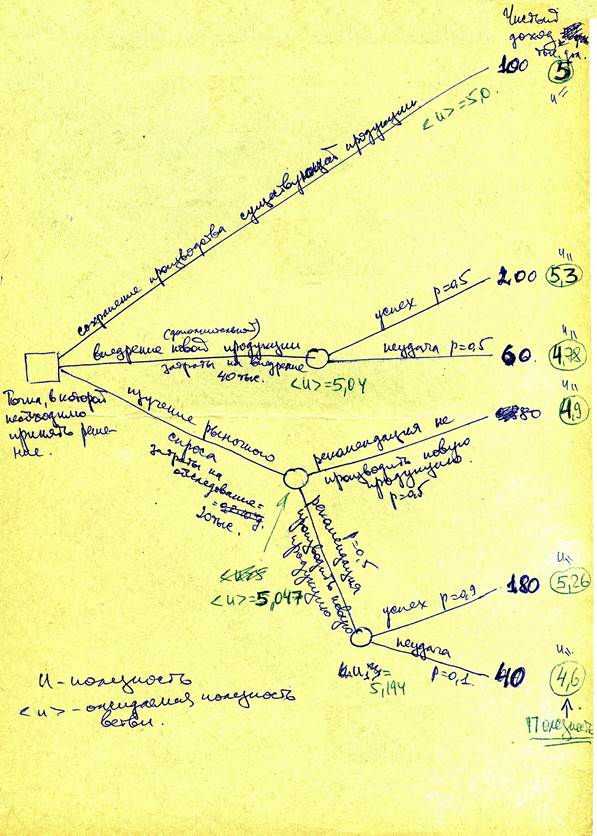 Чистый
доход,
тыс. дол.
100
5
u =
<u> = 5,0.
сохранение производства существующей продукции
200
u =
5,3
успех p=0,5
(дополнительной)
внедрение новой продукции
затраты на внедрение
40 тыс.
<u> = 5,04
неудача p=0,5
60
u =
4,78
Точка, в которой
необходимо
принять реше-
ние.
изучение рыночного
спроса
затраты на
=
20 тыс.
рекомендация не
производить новую
продукцию
p=0,5
80
u =
4,9
рекомендация
производить новую
продукцию
p=0,5
<u> = 5,047
успех p=0,9
180
u =
5,26
неудача
p=0,1
40
u =
4,6
=
5,194
Полезность
u – полезность
<u> – ожидаемая полезность
ветви.